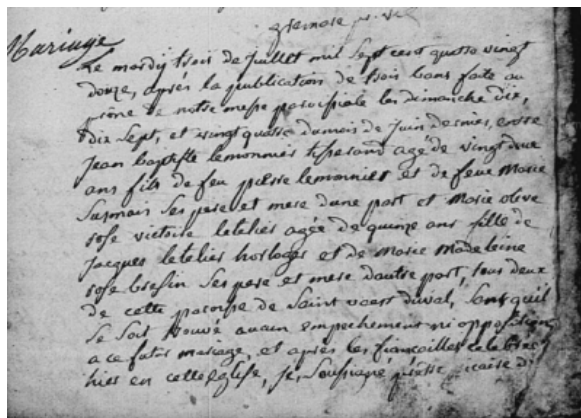 Mariage
Le mardy trois de juillet mil sept cent quatre vingt
douze, aprés la publication de trois bans faite au
prône de notre messe paroissiale les dimanche dix,
dix sept, et vingt quatre du mois de juin dernier, entre
jean baptiste lemonnier tisserand agé de vingt deux
ans fils de feu pierre lemonnier et de feue Marie
Surmain ses pere et mere d'une part et Marie
rose victoire letelier agée de quinze ans fille de
jacques letelier horloger et de Marie Madeleine
rose breslin ses pere et mere d'autre part, tous deux
de cette paroisse de Saint vaast duval, sans quil
se soit trouvé aucun empechement ni opposition
a ce futur mariage, et aprés les fiancailles celebrées
hier en cette église, je, soussigné prestre vicaire d